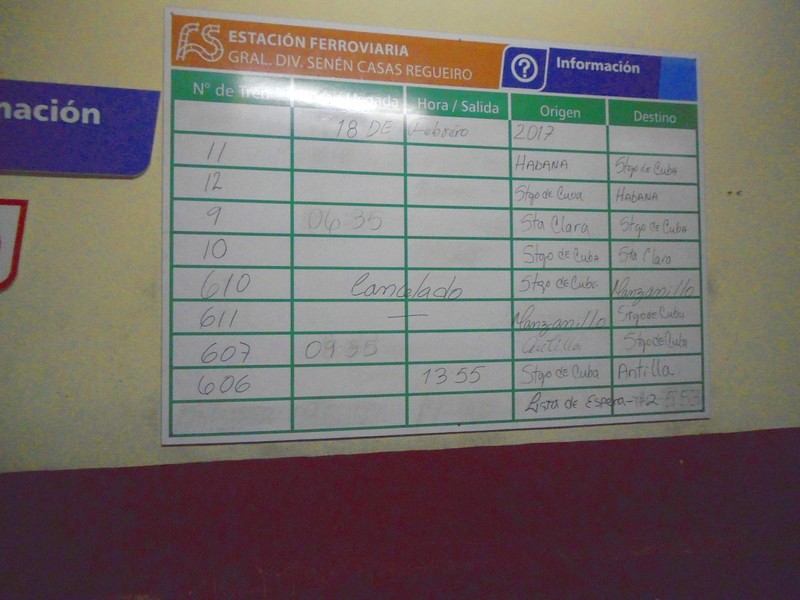 ESTACIÓN FERROVIARIA
GRAL. DIV. SENÉN CASAS REGUEIRO
Información
mación
Nº de Tren Hora / Llegada Hora / Salida Origen Destino
18 DE Febrero 2017
11 HABANA Stgo de Cuba
12 Stgo de Cuba HABANA
9 06 35 Sta Clara Stgo de Cuba
10 Stgo de Cuba Sta Clara
610 Cancelado Stgo de Cuba Manzanillo
611 — Manzanillo Stgo de Cuba
607 09 35 Antilla Stgo de Cuba
606 13 55 Stgo de Cuba Antilla
Lista de Espera